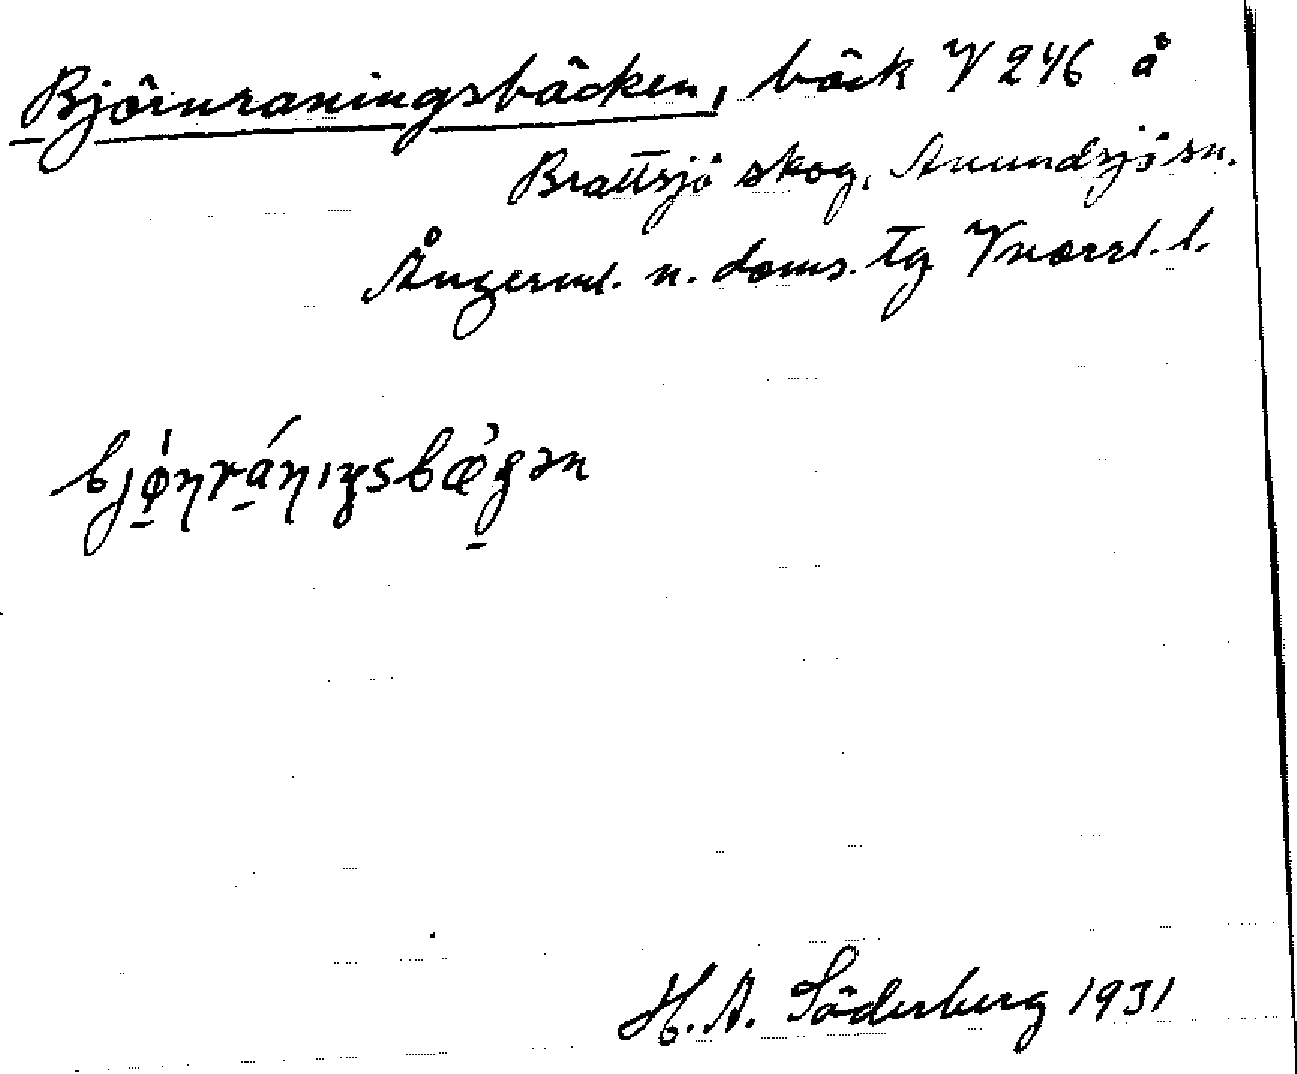 Björnraningsbäcken, bäck V 246 å
Brattsjö skog, Anundsjö sn.
Ångerml. n. doms. tg Vnorrl. l.
bjǿŋráŋıŋsbǽgən
H. A. Söderberg 1931